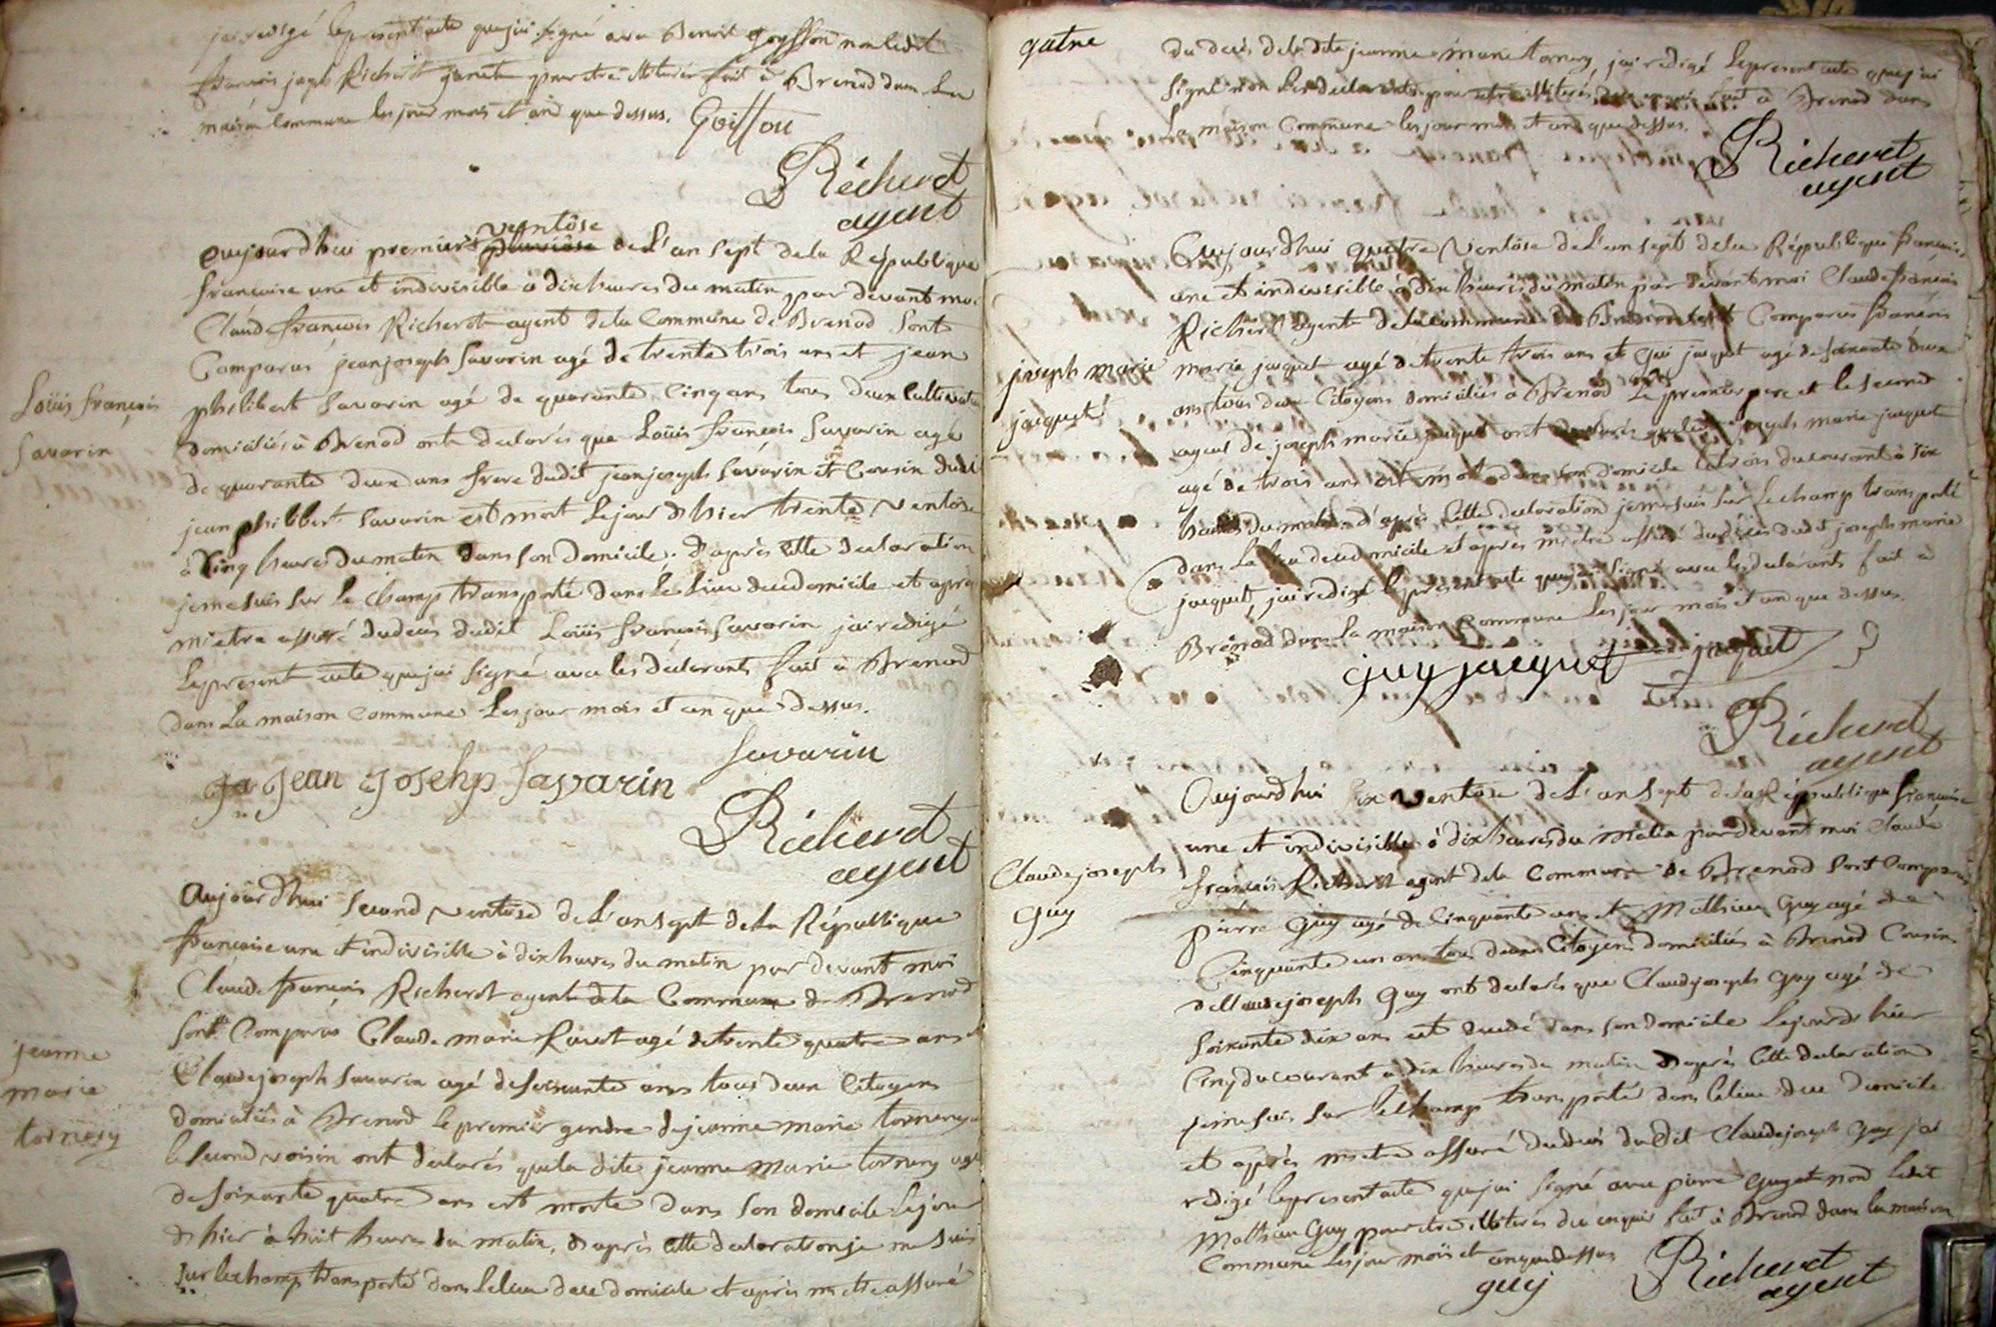 jai redigé le present acte que jai signé avec Benoit goyffon non ledit
francois joseph Richerot pour etre illiteré fait à Brenod dans la
maison Commune les jour mois et an que dessus. Goiffon
Richerot
agent
Louis françois
Savarin
ventôse
aujourdhui premier pluviôse de L'an sept de la République
francaise une et indivisible à dix heures du matin par devant moi
Claude francois Richerot agent de la Commune de Brenod Sont
Comparus jean joseph Savarin agé de trente trois ans et jean
philibert Savarin agé de quarante Cinq ans tous deux Cultivateurs
domiciliés à Brenod ont declarés que Loüis françois Savarin agé
de quarante deux ans frere dudit jean joseph Savarin et Cousin dudit
jean philibert Savarin est mort Le jour d'hier trente ventôse
à Cinq heures du matin dans son domicile. d'après Cette declaration
je me suis sur le champ transporté dans Le Lieu du domicile et après
m'etre assuré du decés dudit Loüis francois Savarin jai redigé
Le present acte que jai signé avec les déclarants fait à Brenod
dans La maison Commune Les jour mois et an que dessus.
Savarin
Jean Josehp Savarin
Richerot
agent
jeanne
marie
tornery
Aujourdhui Second ventôse de L'an sept de la République
francaise une et indivisible à dix heures du matin par devant moi
Claude francois Richerot agent de la Commune de Brenod
sont Comparus Claude marie Ravet agé de trente quatre ans et
Claude joseph Savarin agé de soixante ans tous deux Citoyens
domiciliés à Brenod le premier gendre de jeanne marie tornery et
le second voisin ont déclarés que la dite jeanne marie tornery agé
de soixante quatre ans est morte dans son domicile Le jour
d'hier à huit heures du matin, d'après Cette declaration je me suis
sur le champ transporté dans Le lieu du domicile et après m'etre assuré
quatre
du decés de la dite jeanne marie tornery, jai redigé Le present acte que jai
signé non les déclarants pour etre illiterés de ce enquis fait à Brenod dans
La maison Commune les jour mois et an que dessus.
Richerot
agent
joseph marie
jacquet
Aujourdhui quatre Ventôse de L'an sept de la République francaise
une et indivisible à dix heures du matin par devant moi Claude francois
Richerot agent de la commune de Brenod sont Comparus francois
marie jacquet agé de trente trois ans et Guy jacquet agé de soixante deux
ans tous deux Citoyens domiciliés à Brenod Le premier pere et le second
ayeul de joseph marie jacquet ont declarés que ledit joseph marie jacquet
agé de trois ans est mort dans son domicile le trois du courant à six
heures du matin d'après Cette declaration je me suis sur Le champ transporté
dans Le lieu du domicile et après m'etre assuré du décés dudit joseph marie
jacquet, jai redigé le présent acte que jai signé avec les déclarants fait à
Brenod dans la maison Commune Les jour mois et an que dessus.
guy jacquet jacquet
Richerot
agent
Claude joseph
Guy
Aujourdhui six ventôse de L'an sept de la République française
une et indivisible à dix heures du matin par devant moi Claude
francois Richerot agent de la Commune de Brenod sont Comparus
pierre Guy agé de Cinquante ans et Mathieu Guy agé de
Cinquante un ans tous deux Citoyens domiciliés à Brenod Cousins
de Claude joseph Guy ont declarés que Claude joseph Guy agé de
soixante dix ans est decedé dans son domicile Le jour d'hier
Cinq du courant à dix heures du matin d'après Cette declaration
je me suis sur le champ transporté dans le lieu du Domicile
et après m'etre assuré du decés dudit Claude joseph Guy jai
redigé le present acte que jai signé avec pierre Guy et non ledit
Mathieu Guy pour etre illiterés de ce enquis fait à Brenod dans la maison
Commune les jour mois et an que dessus
guy
Richerot
agent